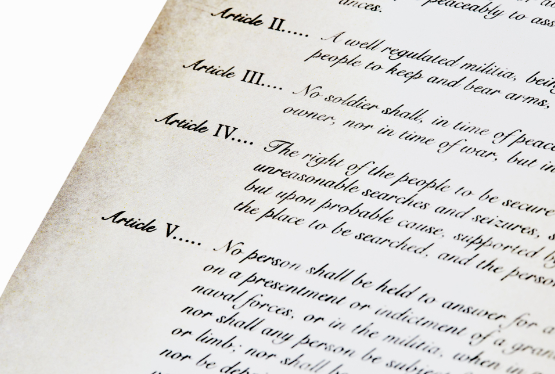 peaceably to ass
ances.
Article II..... A well regulated militia, being
people to keep and bear arms,
Article III.... No soldier shall, in time of peace
owner, nor in time of war, but in
Article IV.... The right of the people to be secure
unreasonable searches and seizures, s
but upon probable cause, supported b
the place to be searched, and the person
Article V..... No person shall be held to answer for a
on a presentment or indictment of a gran
naval forces, or in the militia, when in a
nor shall any person be subject
or limb; nor shall b
nor be dep